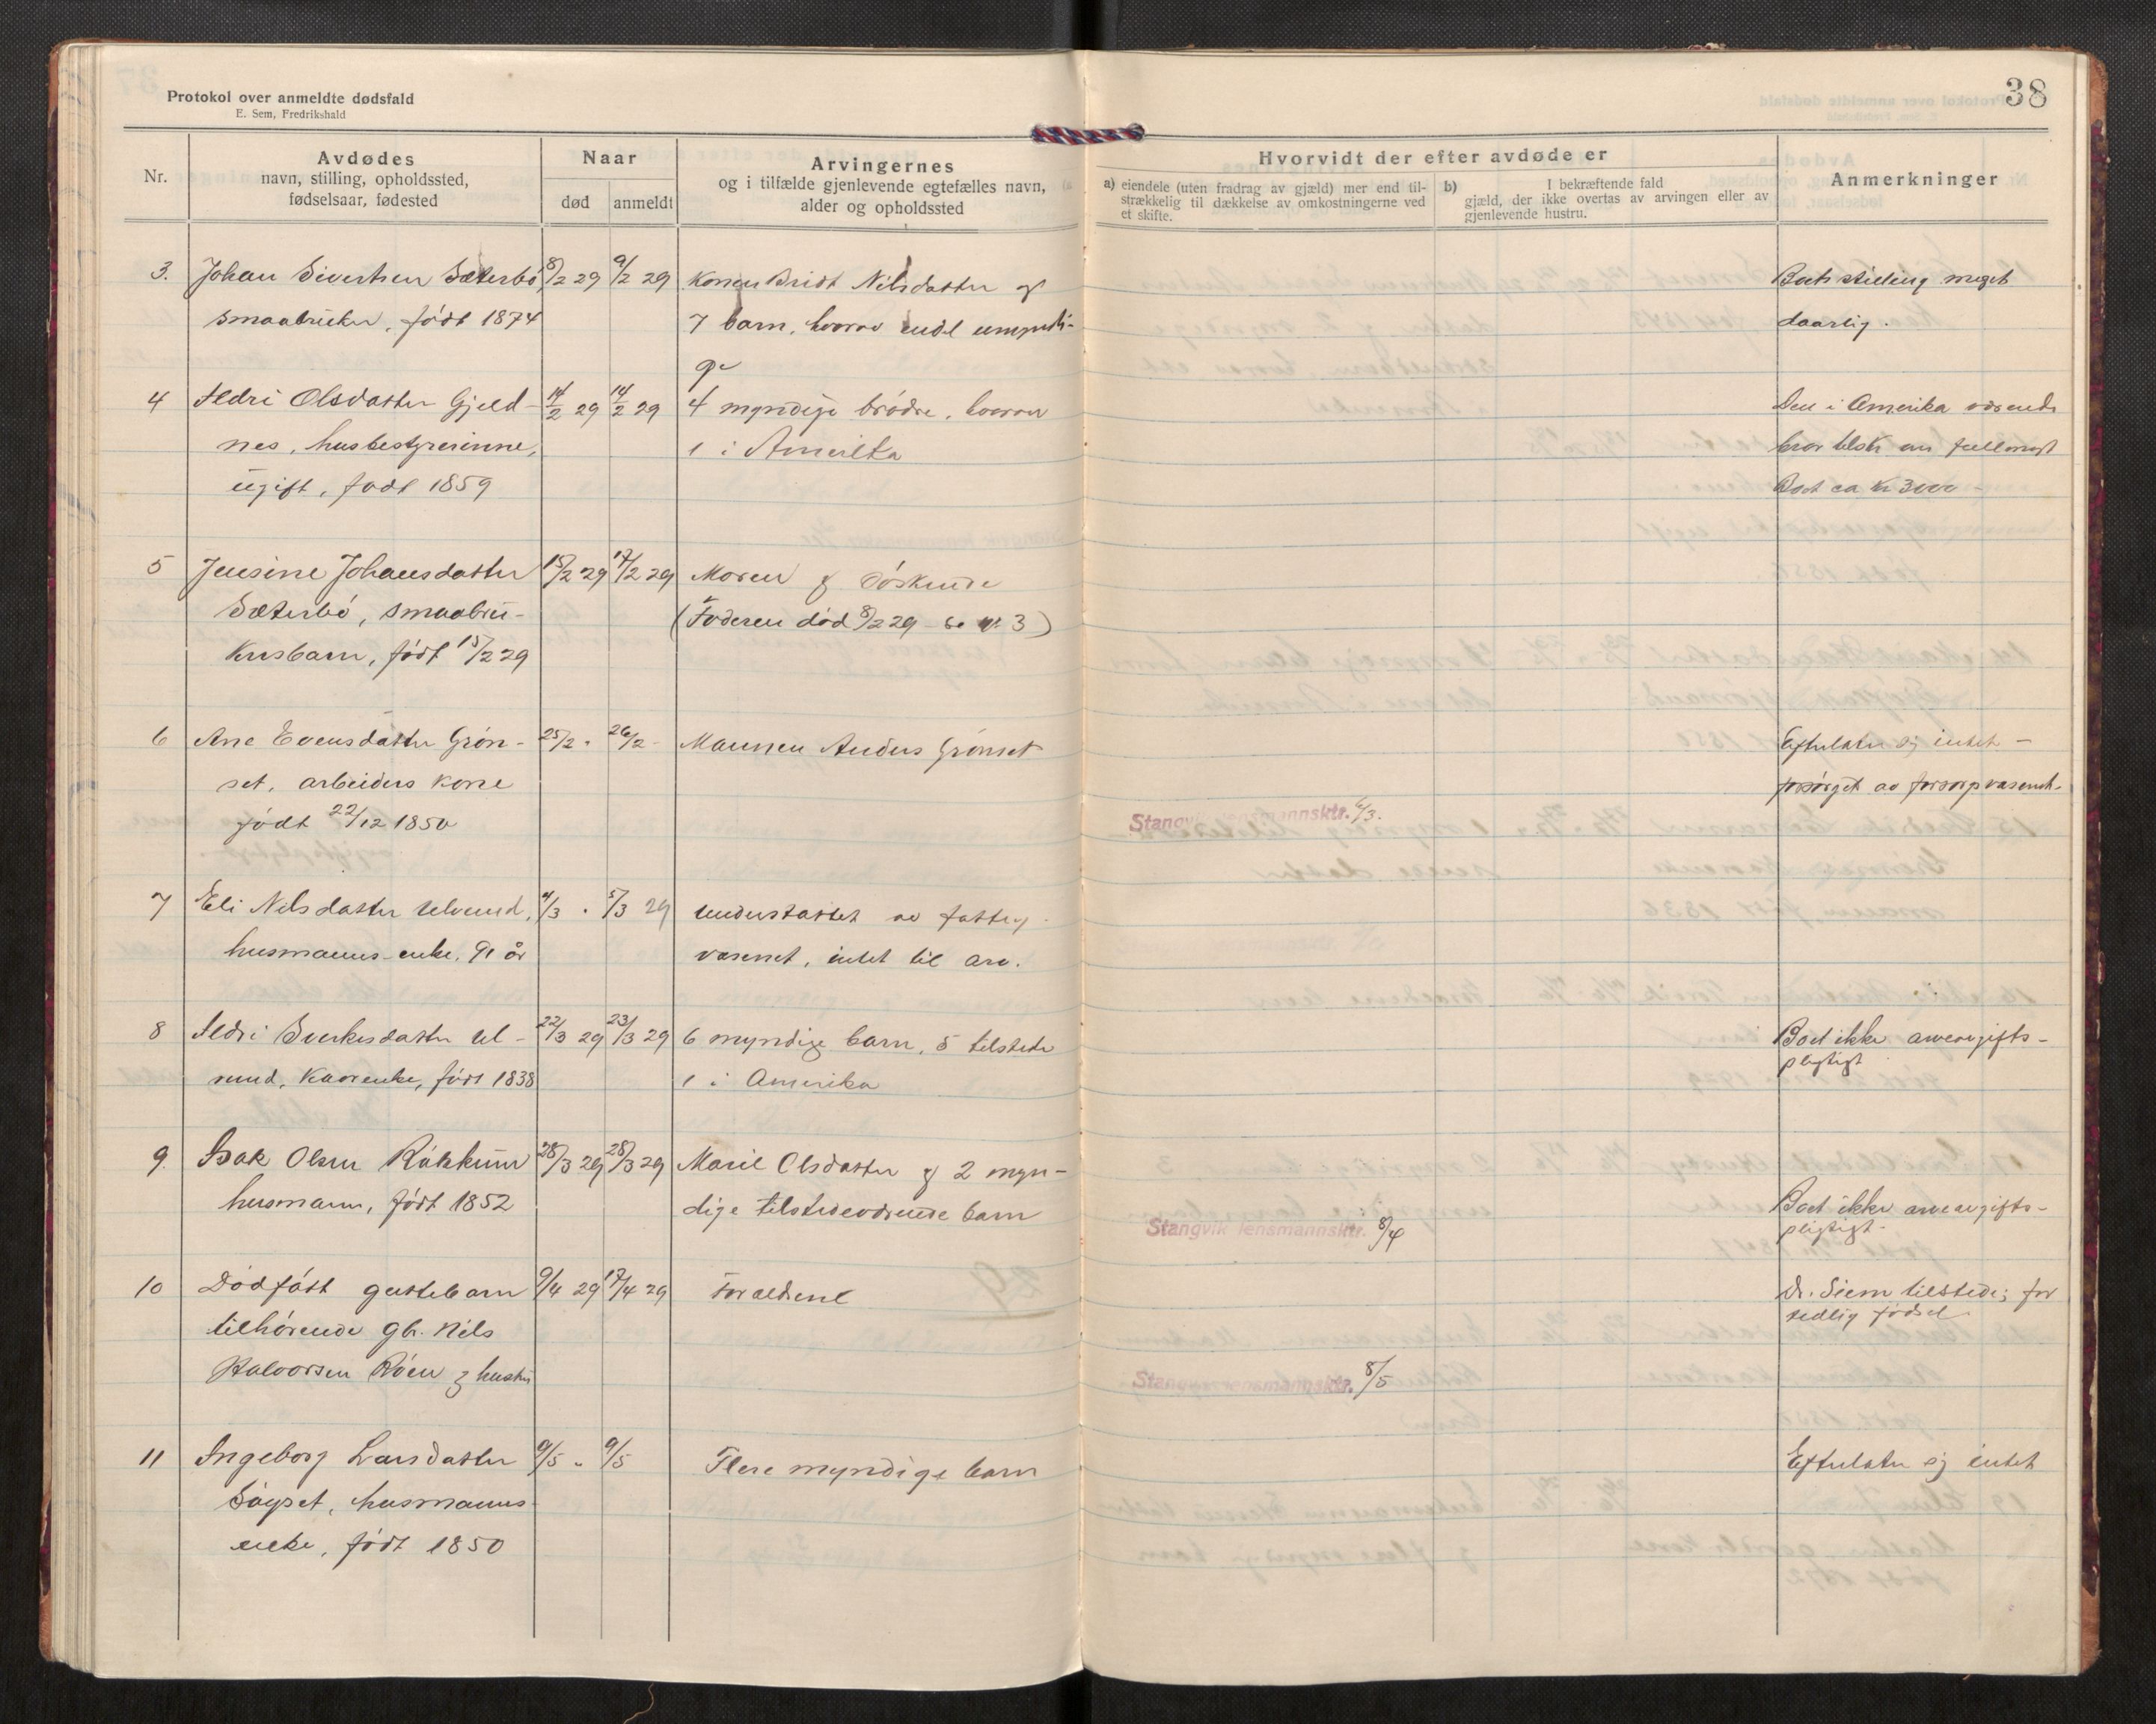 Protokol over anmeldte dødsfald
E. Sem, Fredrikshald
38
Nr.
Avdødes
navn, stilling, opholdssted,
fødselsaar, fødested
Naar
død
anmeldt
Arvingernes
og i tilfælde gjenlevende egtefælles navn,
alder og opholdssted
Hvorvidt der efter avdøde er
a) eiendele (uten fradrag av gjæld) mer end til-
strækkelig til dækkelse av omkostningerne ved
et skifte.
b) I bekræftende fald
gjæld, der ikke overtas av arvingen eller av
gjenlevende hustru.
Anmerkninger
3. Johan Sivertsen Sæterbø, 8/2 29 9/2 29 Konen Nilsdatter og Boets stilling meget
smaabruker, født 1874 7 barn, hvorav endel umyndi- daarlig.
ge
4 Ildri Olsdatter Gjeld- 14/2 29 14/2 29 4 myndige brødre, hvorav Den i Amerika værende
nes, husbestyrerinne, 1 i Amerika bror
ugift, født 1859 Boet ca kr 3000 -
5 Jensine Johansdatter 15/2 29 17/2 29 Moren & søskende
Sæterbø, smaabru- (Faderen død 8/2 29 se nr. 3)
kersbarn, født 15/2 29
6 Ane Evensdatter Grøn- 25/2 " 26/2 - Mannen Anders Grønset Efterlater sig intet -
set, arbeiders kone forsørget av forsorgsvæsenet.
født 22/12 1850 Stangvik lensmannsktr. 6/3.
7 Eli Nilsdatter Ulvund, 4/3 " 5/3 29 understøttet av fattig-
husmanns-enke, 91 år væsenet, intet til arv.
8 Ildri Sverkesdatter Ul- 22/3 29 23/3 29 6 myndige barn, 5 tilstede Boet ikke arveavgifts-
vund, kaarenke, født 1838 1 i Amerika pligtigt
9. Isak Olsen Røkkum 28/3 29 28/3 29 Marit Olsdatter & 2 myn-
husmann, født 1852 dige tilstedeværende barn Boet ikke arveavgifts-
Stangvik lensmannsktr. 8/4 pligtigt.
10 Dødfødt guttebarn 9/4 29 17/4 29 Forældrene Dr. Siem tilstede; for
tilhørende gbr. Nils tidlig fødsel
Halvorsen Røen & hustru Stangvik lensmannsktr. 8/5
11 Ingeborg Larsdatter 9/5 " 9/5 Flere myndige barn Efterlater sig intet
Søyset, husmanns-
enke, født 1850